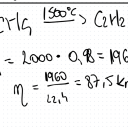 CH4 1500°C > C2H2
= 2000 · 0,98 = 196
n = 1960 / 22,4 = 87,5 k